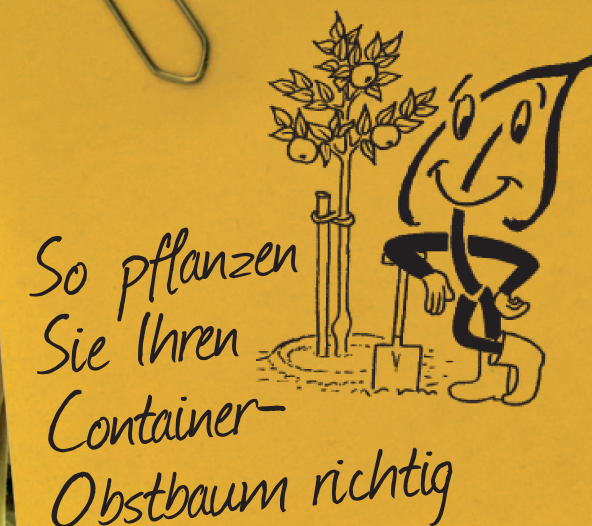 So pflanzen
Sie Ihren
Container-
Obstbaum richtig